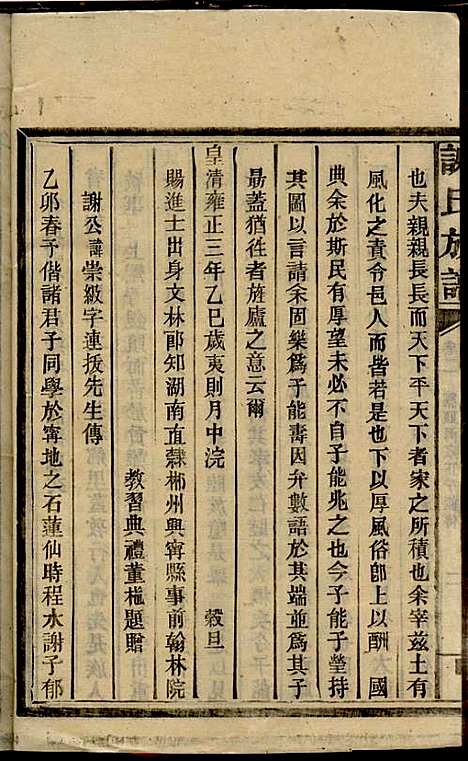 謝氏族譜
也夫親親長長而天下平天下者家之所積也余宰兹土有
風化之責令邑人士皆敦孝弟以厚風俗卽上以酬大國
典余於斯民有厚望未必不自子能兆之也今子能子瑩持
其圖以言請余固樂爲子能壽因弁數語於其端並爲其
勗蓋猶徃者旌廬之意云爾
皇清雍正三年乙巳歲夷則月中浣 穀旦
賜進士出身文林郎知湖南直隸郴州興甯縣事前翰林院
教習典禮董 題贈
謝公諱崇級字連拔先生傳
乙卯春予偕諸君子同學於甯地之石蓮仙時程水謝子郁